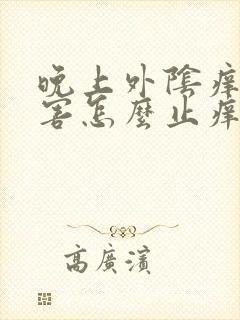 晚上外陰痒
害怎麼止痒
高廣濱